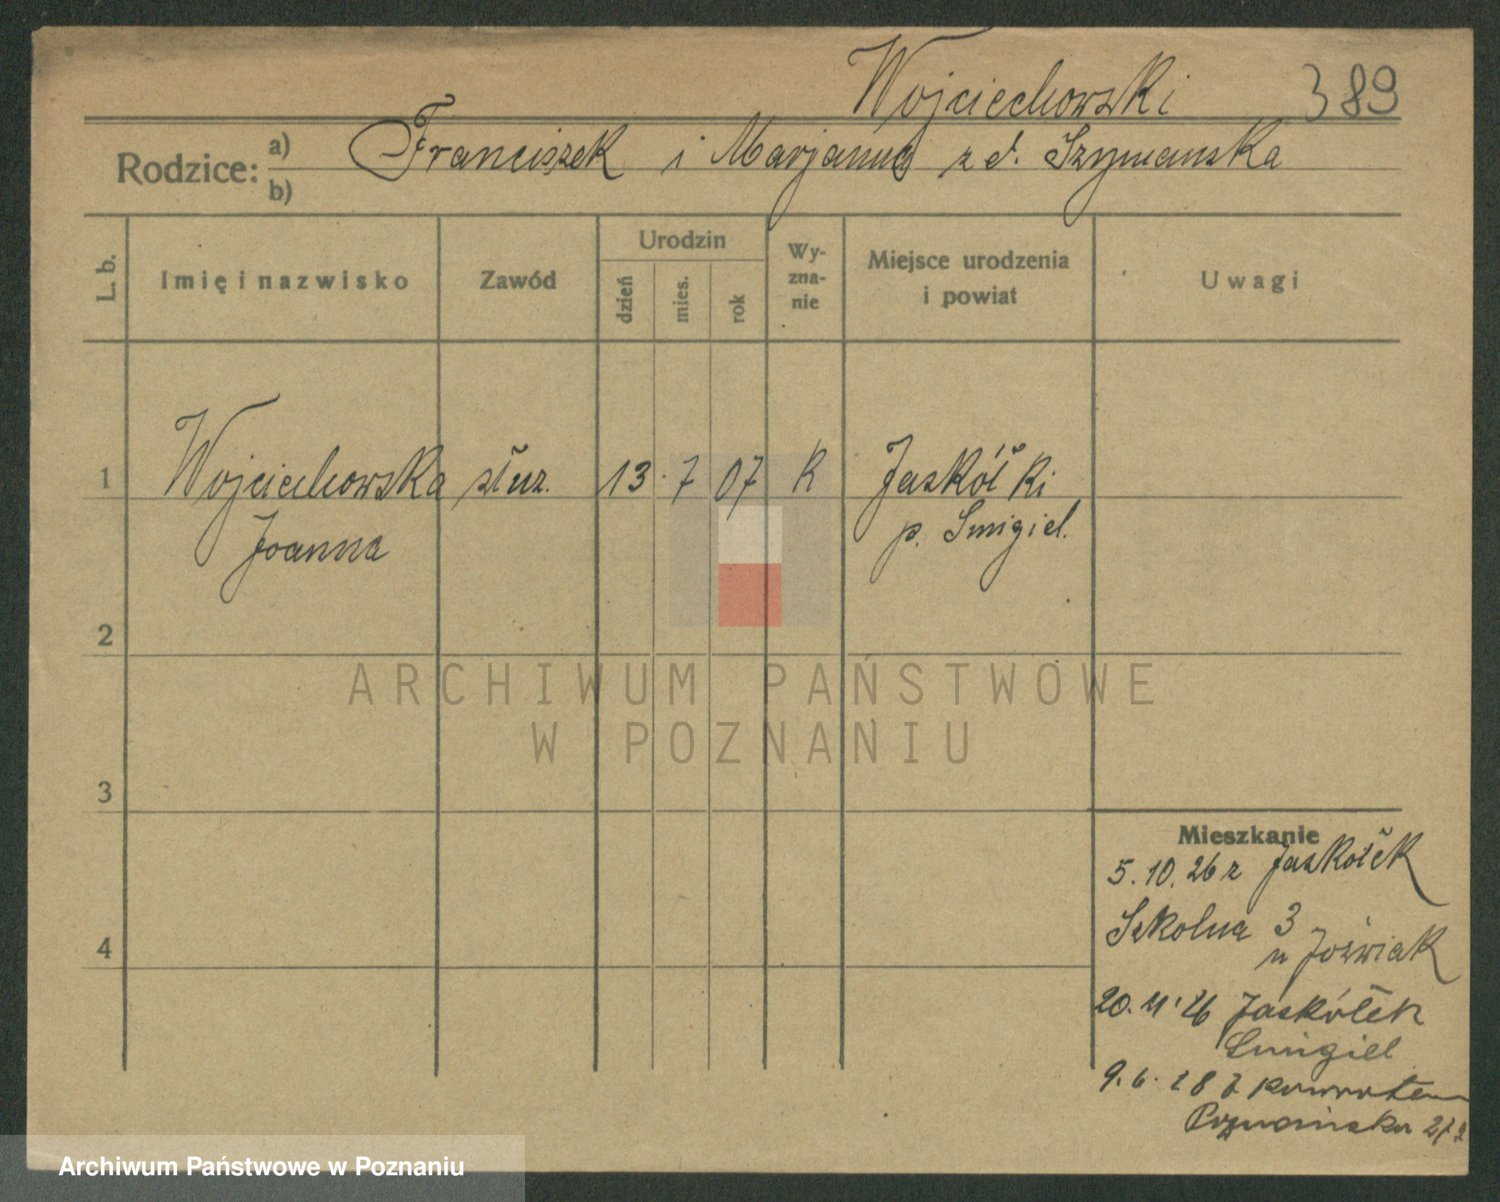 Wojciechowski 389
Rodzice: a) Franciszek i Marjanna z d. Szymańska
b)
L. b. Imię i nazwisko Zawód Urodzin dzień mies. rok Wy-zna-nie Miejsce urodzenia i powiat Uwagi
1 Wojciechowska służ. 13. 7 07 k Jaskółki
Joanna p. Smigiel.
2
ARCHIWUM PAŃSTWOWE
W POZNANIU
3
Mieszkanie
5. 10. 26 z Jaskółek
4 Szkolna 3
u Jóźwiak
20. 11. 26 Jaskółek
Smigiel
9. 6. 28 z powrotem
Poznańska
Archiwum Państwowe w Poznaniu